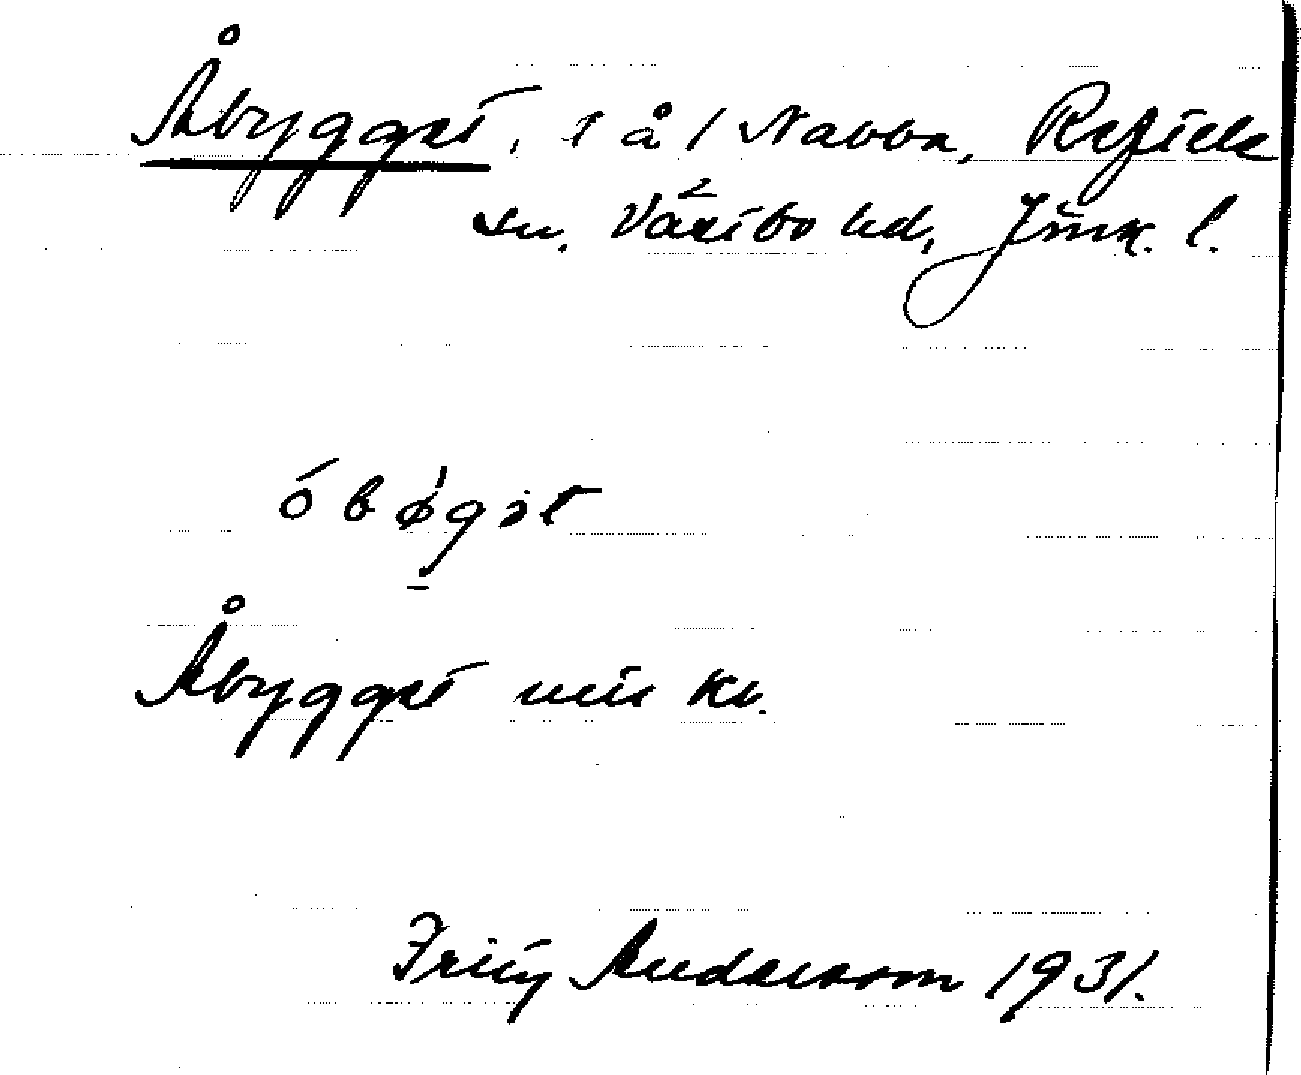 Åbygget, 1 å 1 Nabba, Reftele
sn. Västbo hd, Jönk. l.
óbøgət
Åbygget mis kv.
Fritz Andersson 1931.